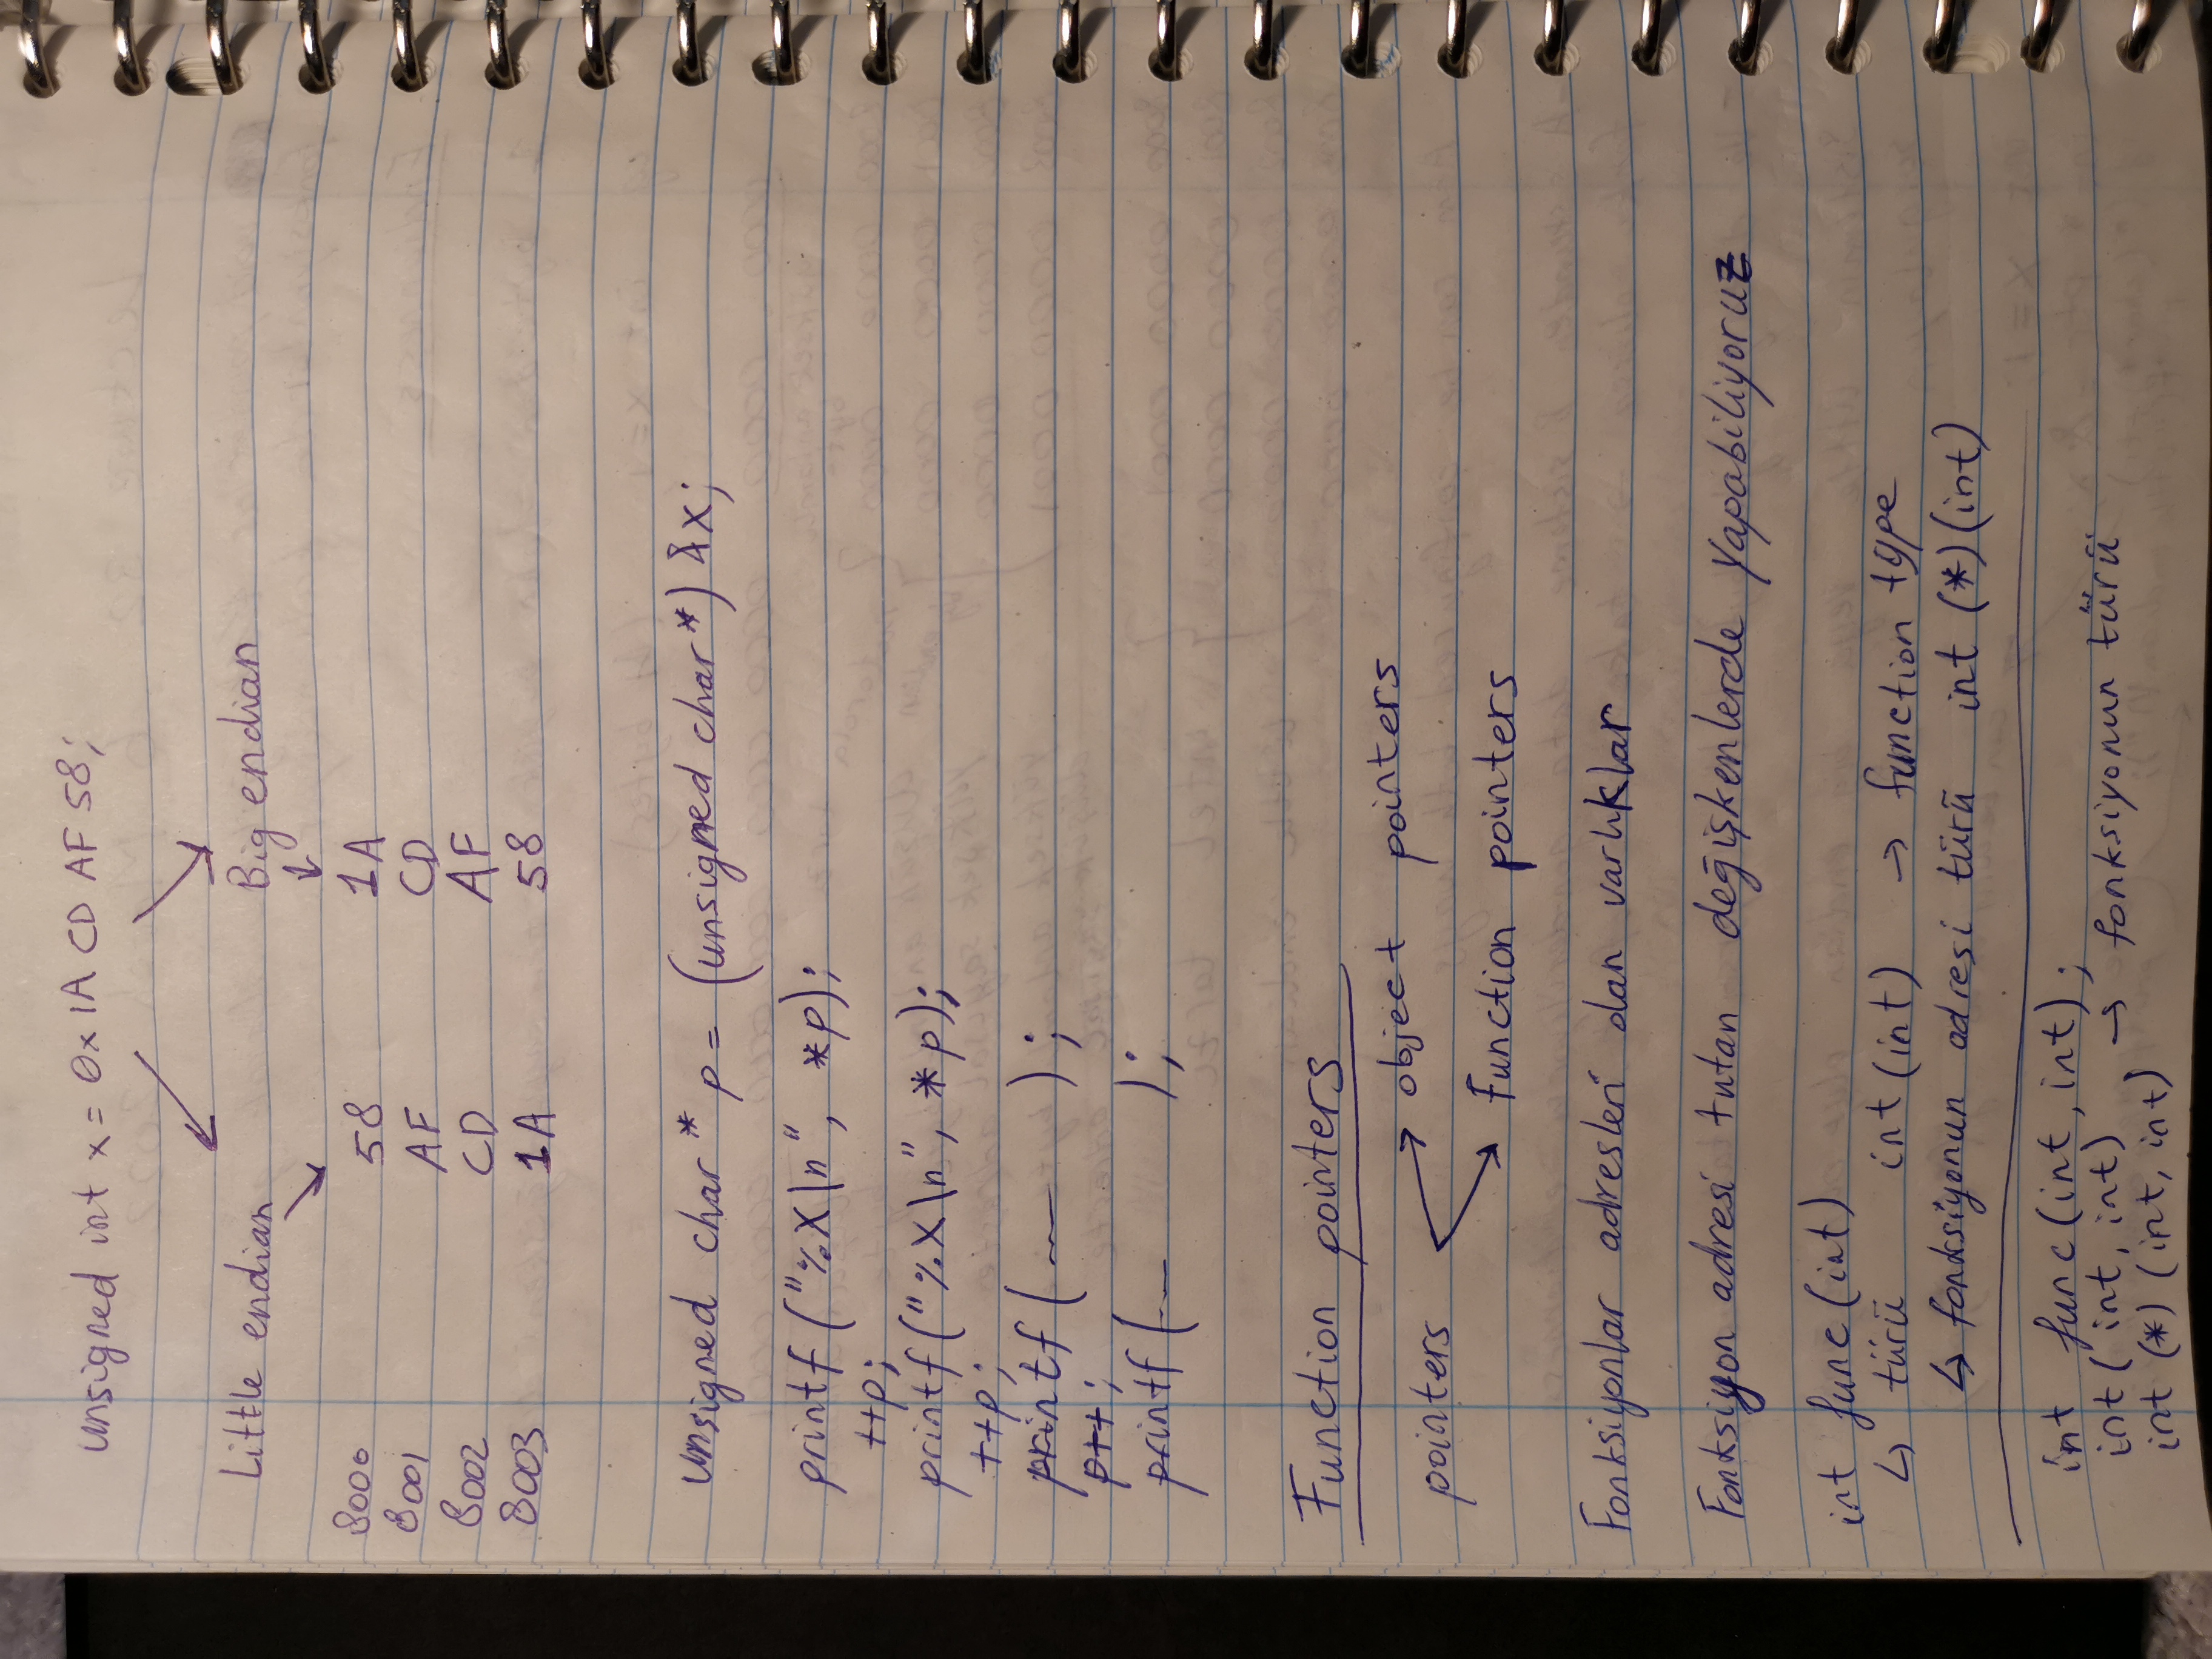 unsigned int x = 0x 1A CD AF 58;
Little endian Big endian
8000 58 1A
8001 AF CD
8002 CD AF
8003 1A 58
unsigned char* p = (unsigned char*) &x;
printf ("%X\n", *p);
++p;
printf("%X\n", *p);
++p;
printf ( — );
p++;
printf (— );
Function pointers
pointers → object pointers
→ Function pointers
Fonksiyonlar adresleri olan varlıklar
Fonksiyon adresi tutan değişkenlerde yapabiliyoruz
int func(int)
↳ türü int(int) → function type
↳ fonksiyonun adresi türü int (*)(int)
int func(int, int);
int( int, int) → fonksiyonun türü
int (*) (int, int)